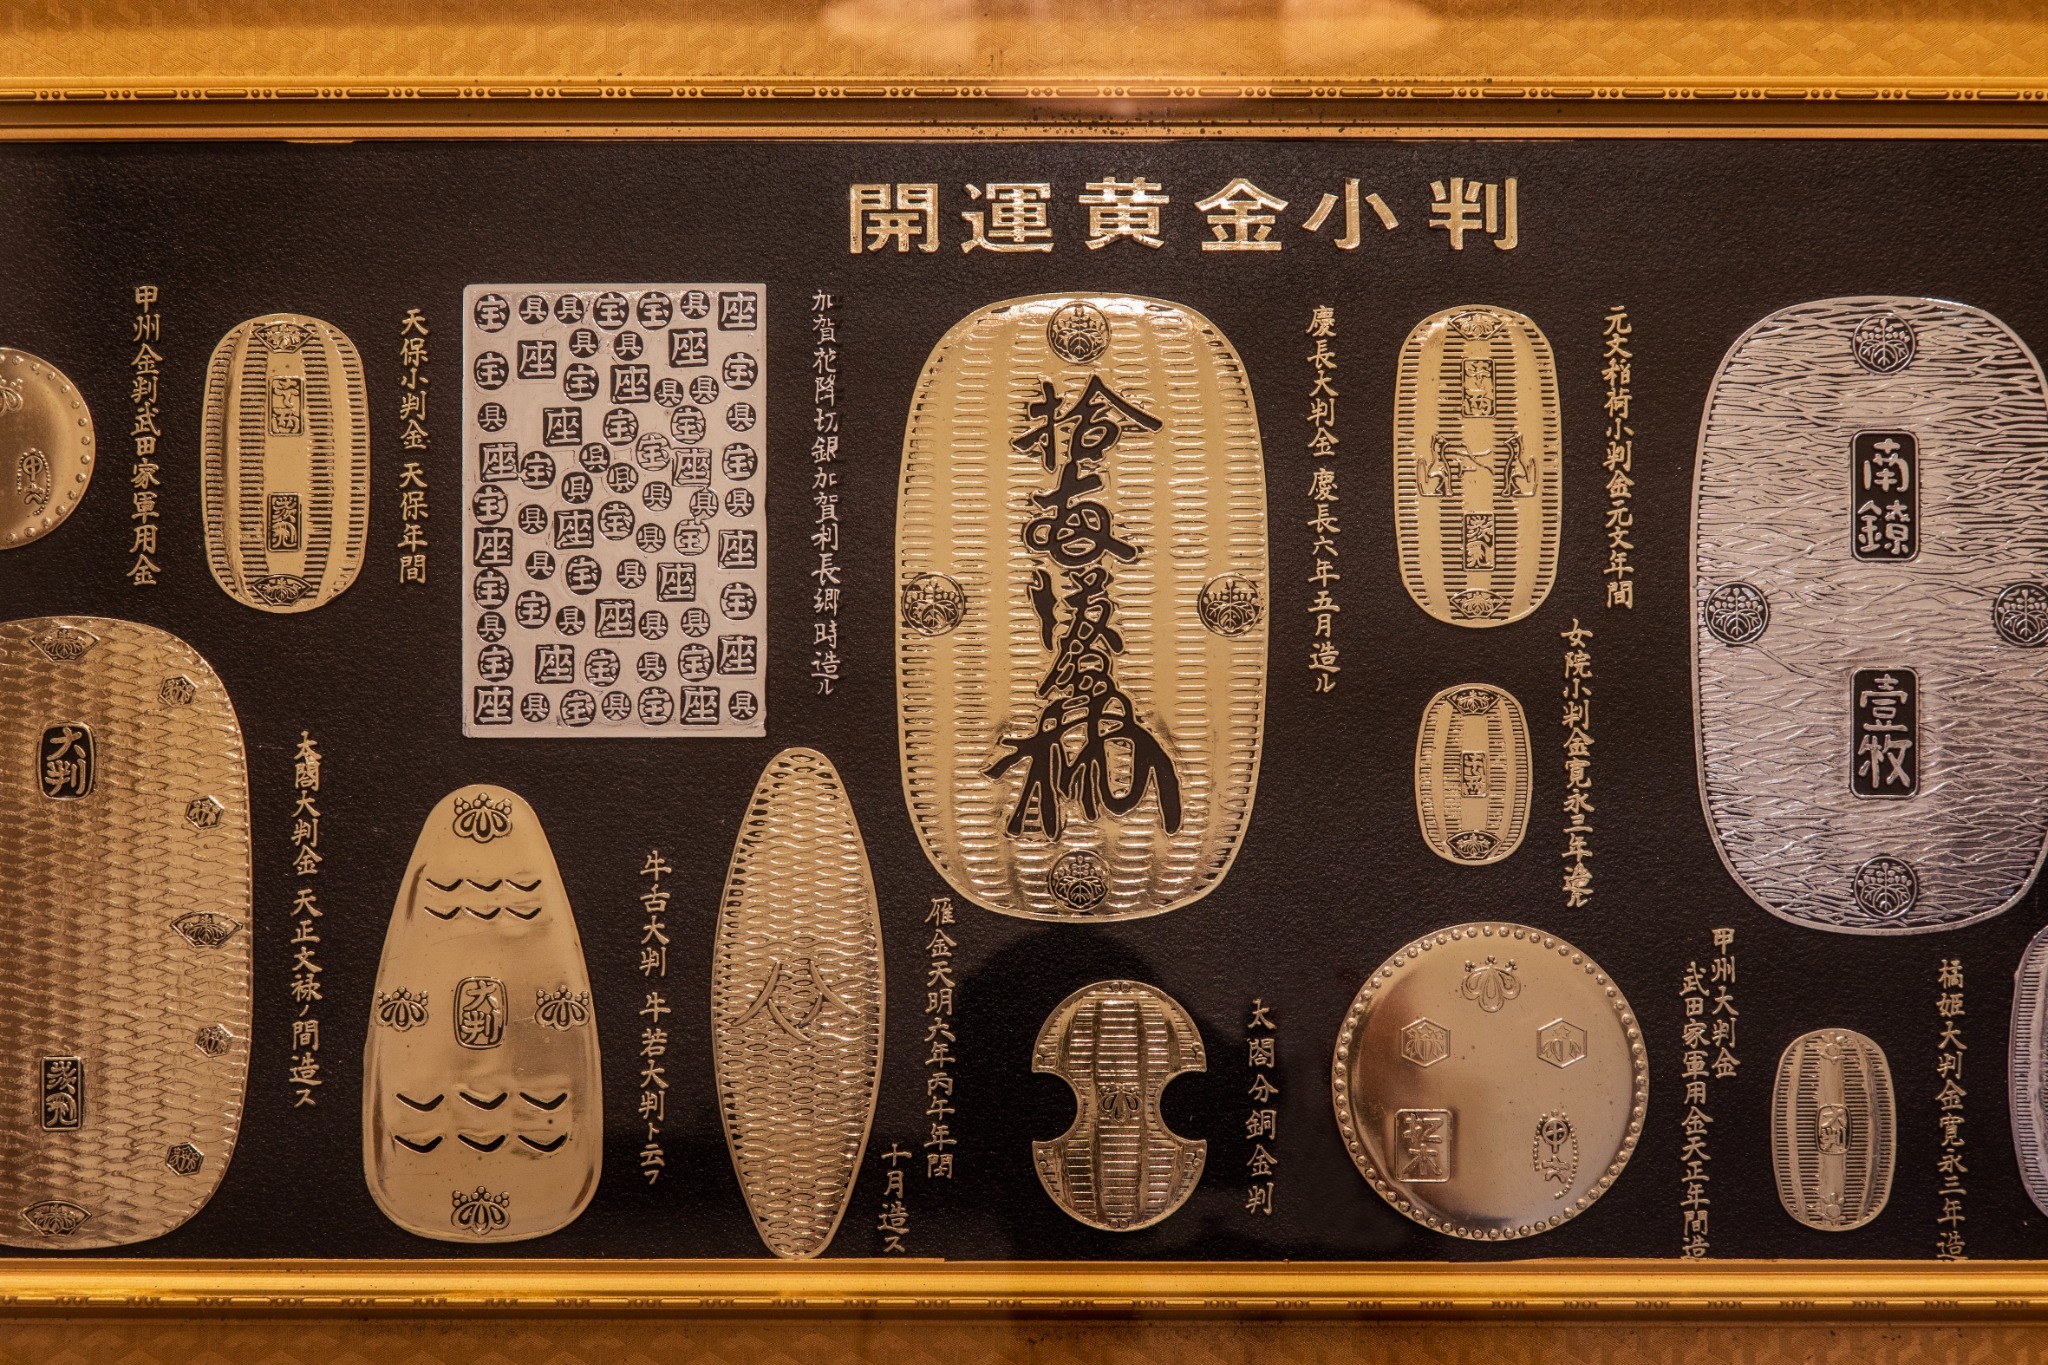 開運黄金小判
元文稲荷小判金元文年間
慶長大判金 慶長六年五月造ル
加賀花降切銀加賀利長郷時造ル
天保小判金 天保年間
甲州金判武田家軍用金
女院小判金寛永三年造ル
橘姫大判金寛永三年造
甲州大判金
武田家軍用金天正年間造
太閤分銅金判
雁金天明六年丙午年閏
十月造ス
牛舌大判 牛若大判ト云フ
太閤大判金 天正文禄ノ間造ス
南鐐
壹枚
拾両
大判
大判
大判